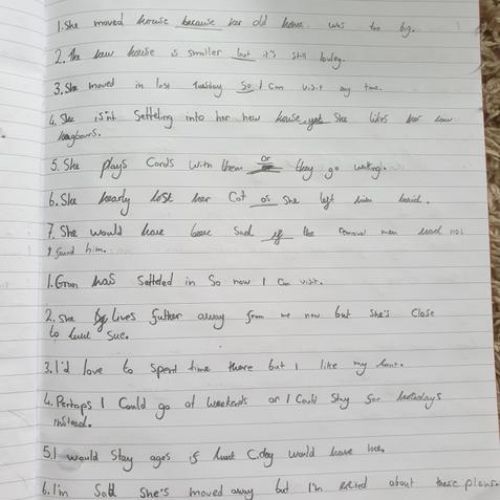 1. She moved house because her old house was too big.
2. The new house is smaller but it's still lovley.
3. She moved in last Tuesday So I Can visit any time.
4. She isn't Setteling into her new house yet She likes her new
neighbours.
5. She plays Cards With them or they go walking.
6. She nearly lost her Cat as She left him behind.
7. She would have been Sad if the removal men had not
found him.
1. Gran has Setteled in So now I Can visit.
2. She lives futher away from me now but She's Close
to Sue.
3. I'd love to Spend time there but I like my home.
4. Perhaps I Could go at Weekends or I Could Stay for holidays
instead.
5. I would Stay ages if would have me.
6. I'm Sad She's moved away but I'm about these plans